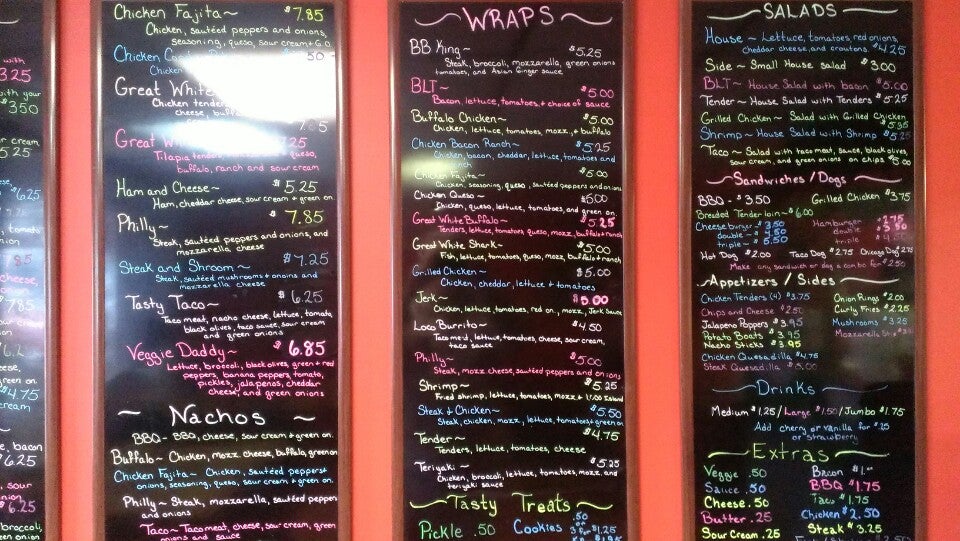 with
3.25
with your
$350
sour cream
5.25
$6.25
7.85
$4.75
cream
bacon
$6.25
sour
onion
broccoli,
Chicken Fajita~ $7.85
Chicken, sautéed peppers and onions,
seasoning, queso, sour cream + G.O
Chicken
50
Chicken
Great White
Chicken tender
cheese, buffa
Great Wh
7.25
Tilapia tenders, queso,
buffalo, ranch and sour cream
Ham and Cheese~ $5.25
Ham, cheddar cheese, sour cream + green on.
Philly~ $7.85
Steak, sautéed peppers and onions, and
mozzarella cheese
Steak and Shroom~ $7.25
Steak, sautéed mushrooms + onions and
mozzarella cheese
Tasty Taco~ $6.25
Taco meat, nacho cheese, lettuce, tomato,
black olives, taco sauce, sour cream
and green onions
Veggie Daddy~ $6.85
Lettuce, broccoli, black olives, green + red
peppers, banana peppers, tomato,
pickles, jalapenos, cheddar
cheese, and green onions
~ Nachos ~
BBQ- BBQ, cheese, sour cream + green on.
Buffalo~ Chicken, mozz. cheese, buffalo, green on
Chicken Fajita~ Chicken, sautéed peppers +
onions, seasoning, queso, sour cream + green on.
Philly~ Steak, mozzarella, sautéed peppers
and onions
Taco~ Taco meat, cheese, sour cream, green
onions and tomatoes
WRAPS
BB King~ $5.25
Steak, broccoli, mozzarella, green onions
tomatoes, and Asian Ginger sauce
BLT~ $5.00
Bacon, lettuce, tomatoes, + choice of sauce
Buffalo Chicken~ $5.00
Chicken, lettuce, tomatoes, mozz., + buffalo
Chicken Bacon Ranch~ $5.25
Chicken, bacon, cheddar, lettuce, tomatoes and
ranch
Chicken Fajita~ $5.00
Chicken, seasoning, Queso, sautéed peppers and onions
Chicken Queso~ $5.00
Chicken, queso, lettuce, tomatoes, and green on
Great White Buffalo~ $5.25
Tenders, lettuce, tomatoes, queso, mozz., buffalo + ranch
Great White Shark~ $5.00
Fish, lettuce, tomatoes, queso, mozz, buffalo + ranch
Grilled Chicken~ $5.00
Chicken, cheddar, lettuce + tomatoes
Jerk~ $5.00
Chicken, lettuce, tomatoes, red on., mozz, Jerk Sauce
Loco Burrito~ $4.50
Taco med, lettuce, tomatoes, cheddar, sour cream,
taco sauce
Philly~ $5.00
Steak, mozz cheese, sautéed peppers and onions
Shrimp~ $5.25
Fried shrimp, lettuce, tomatoes, mozz + 1,000 Island
Steak + Chicken~ $5.50
Steak, chicken, mozz, lettuce, tomatoes + green on
Tender~ $4.75
Tenders, lettuce, tomatoes, cheese
Teriyaki~ $5.25
Chicken, broccoli, lettuce, tomatoes, mozz, and
teriyaki sauce
Tasty Treats
Pickle .50 Cookies .50 or 3 for $1.25
SALADS
House~ Lettuce, tomatoes, red onions,
cheddar cheese, and croutons $4.25
Side~ Small House salad $3.00
BLT~ House Salad with bacon $5.00
Tender~ House Salad with Tenders $5.25
Grilled Chicken~ Salad with Grilled Chicken
$5.35
Shrimp~ House Salad with Shrimp $5.25
Taco~ Salad with taco meat, sauce, black olives,
sour cream, and green onions on chips $5.00
Sandwiches/Dogs
BBQ - $3.50 Grilled Chicken $3.75
Breaded Tenderloin~ $6.00
Cheeseburger $3.50 Hamburger $2.75
double~ $4.50 double $3.50
triple~ $5.50 triple $4.50
Hot Dog $2.00 Taco Dog $2.75 Chicago Dog $2.75
Make any sandwich or dog a combo for $2.50
Appetizers / Sides
Chicken Tenders (4) $3.75 Onion Rings $2.00
Chips and Cheese $2.50 Curly Fries $2.25
Jalapeno Poppers $3.95 Mushrooms $3.25
Potato Boats $3.95 Mozzarella
Nacho Sticks $3.95
Chicken Quesadilla $4.75
Steak Quesadilla $5.00
Drinks
Medium $1.25/Large $1.50/Jumbo $1.75
Add cherry or vanilla for $.25
or strawberry
Extras
Veggie .50 Bacon $1.00
Sauce .50 BBQ $1.75
Cheese .50 Taco $1.75
Butter .25 Chicken $2.50
Sour Cream .50 Steak $3.25